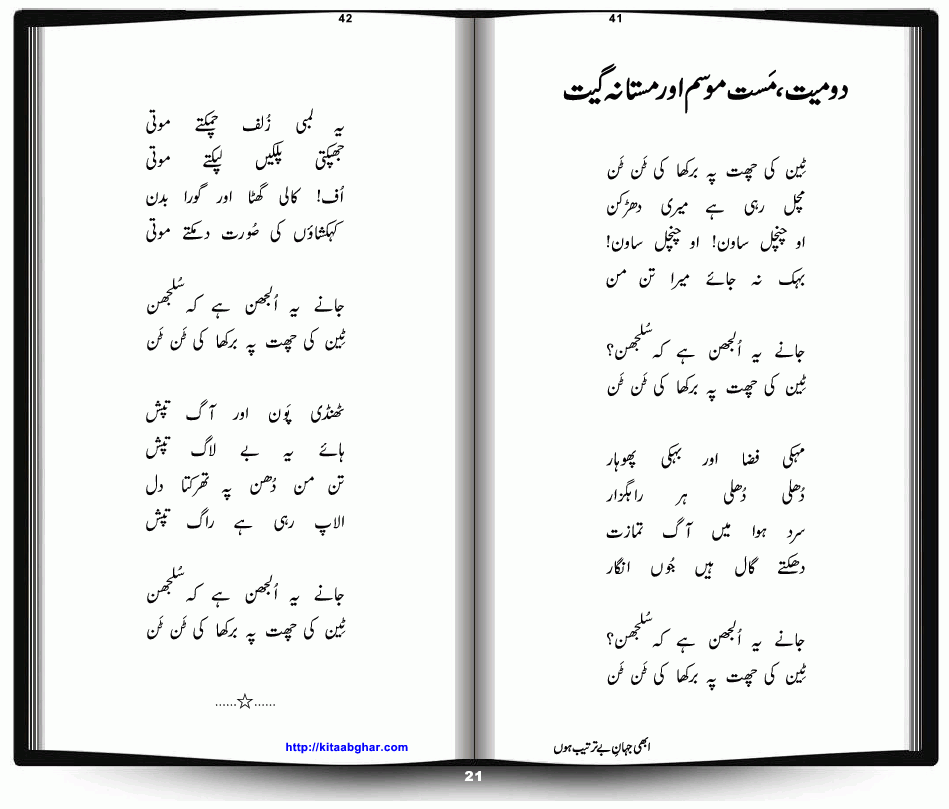 41
دومیت، مَست موسم اور مستانہ گیت
ٹِین کی چھت پہ برکھا کی ٹَن ٹَن
مچل رہی ہے میری دھڑکن
او چنچل ساون! او چنچل ساون!
بہک نہ جائے میرا تن من
جانے یہ اُلجھن ہے کہ سُلجھن؟
ٹِین کی چھت پہ برکھا کی ٹَن ٹَن
مہکی فضا اور بہکی پھوہار
دُھلی دُھلی ہر راہگزار
سرد ہوا میں آگ تمازت
دھکتے گال ہیں جُوں انگار
جانے یہ اُلجھن ہے کہ سُلجھن؟
ٹِین کی چھت پہ برکھا کی ٹَن ٹَن
ابھی جہانِ بے ترتیب ہوں
42
یہ لمبی زُلف چمکتے موتی
جھپکتی پلکیں لپکتے موتی
اُف! کالی گھٹا اور گورا بدن
کہکشاؤں کی صُورت دمکتے موتی
جانے یہ اُلجھن ہے کہ سُلجھن
ٹِین کی چھت پہ برکھا کی ٹَن ٹَن
ٹھنڈی پَون اور آگ تپش
ہائے یہ بے لاگ تپش
تن من دُھن پہ تھرکتا دل
الاپ رہی ہے راگ تپش
جانے یہ اُلجھن ہے کہ سُلجھن
ٹِین کی چھت پہ برکھا کی ٹَن ٹَن
......☆......
http://kitaabghar.com
21